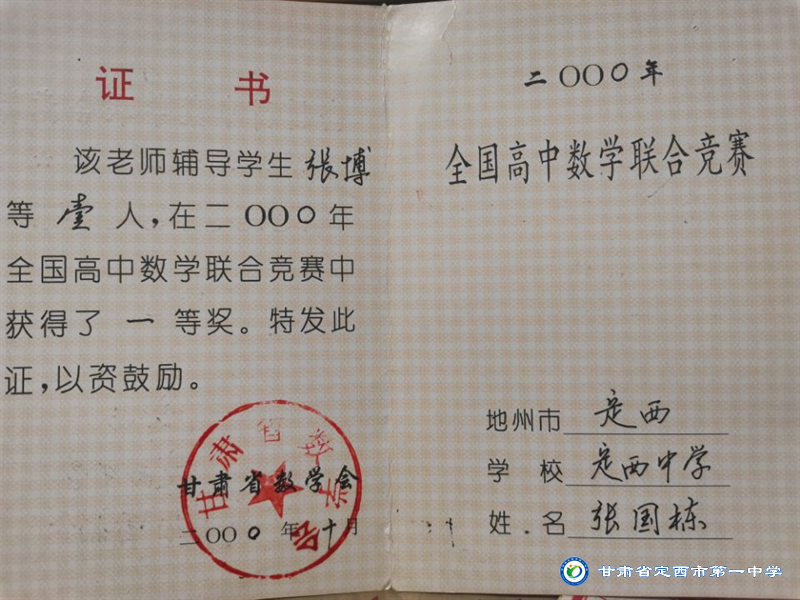 证 书
该老师辅导学生 张博
等 壹 人，在二〇〇〇年
全国高中数学联合竞赛中
获得了 一 等奖。特发此
证，以资鼓励。
甘肃省数学会
二〇〇〇年十月
甘肃省数学会
二〇〇〇年
全国高中数学联合竞赛
地州市 定西
学 校 定西中学
姓 名 张国栋
甘肃省定西市第一中学